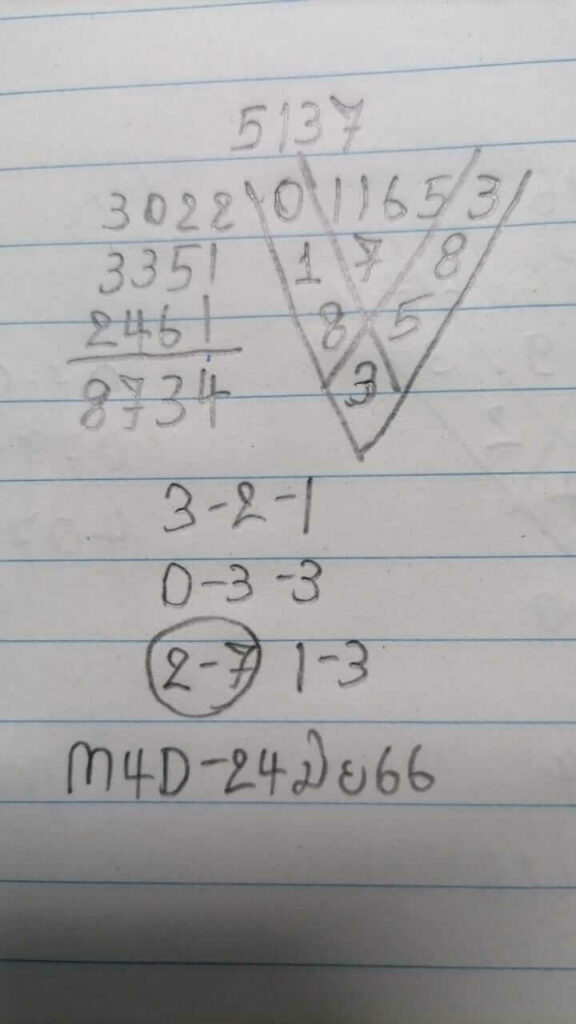 5137
3022 0 1165 3
3351 1 7 8
2461 8 5
8734 3
3-2-1
0-3-3
2-7 1-3
M4D-24มิย66